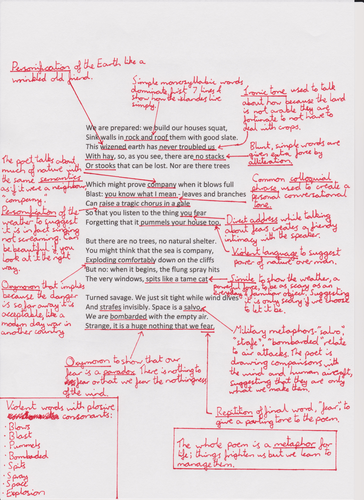 Personification of the Earth like a
wrinkled old friend.
Simple monosyllabic words
dominate first 7 lines to
show how the islanders live
simply.
Ironic tone used to talk
about how because the land
is not arable they are
fortunate to not have to
deal with crops.
We are prepared: we build our houses squat,
Sink walls in rock and roof them with good slate.
This wizened earth has never troubled us
With hay, so, as you see, there are no stacks
Or stooks that can be lost. Nor are there trees
Blunt, simple words are
given more force by
alliteration
The poet talks about
much of nature with
the same semantics
as if it were a neighbour
"company."
Common colloquial
phrase used to create a
personal conversational
tone.
Which might prove company when it blows full
Blast: you know what I mean - leaves and branches
Can raise a tragic chorus in a gale
So that you listen to the thing you fear
Forgetting that it pummels your house too.
Personification of the
weather to suggest
it is in fact singing
not screaming. can
be beautiful if you
look at it the right
way.
Direct address while talking
about fears creates a friendly
intimacy with the speaker.
Violent language to suggest
power of nature over man.
But there are no trees, no natural shelter.
You might think that the sea is company,
Exploding comfortably down on the cliffs
But no: when it begins, the flung spray hits
The very windows, spits like a tame cat
Oxymoron that implies
because the danger
is so far away it is
acceptable, like a
modern day war in
another country
Simile to show the weather, a
powerful force, to be as scary as an
everyday & familiar object. Suggesting
it is only scary if we choose
to let it be.
Turned savage. We just sit tight while wind dives
And strafes invisibly. Space is a salvo,
We are bombarded with the empty air.
Strange, it is a huge nothing that we fear.
Military metaphors- "salvo",
"strafe", "bombarded" relate
to air attacks. The poet is
drawing comparisons with
the wind and human aircraft,
suggesting that they are only
what we make them.
Oxymoron to show that our
fear is a paradox. There is nothing to
fear or that we fear the nothingness
of the wind.
Repetition of final word, "fear", to
give a parting tone to the poem.
Violent words with plosive
consonants:
· Blows
· Blast
· Pummels
· Bombarded
· Spits
· Spray
· Space
· Explosion
The whole poem is a metaphor for
life; things frighten us but we learn to
manage them.